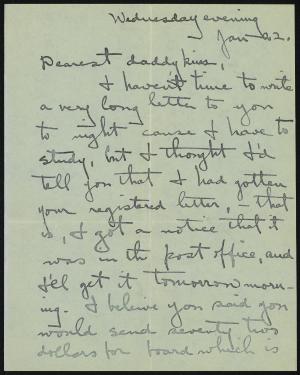 Wednesday evening
Jan 22.
Dearest daddykins,
I haven't time to write
a very long letter to you
to night cause I have to
study, but I thought I'd
tell you that I had gotten
your registered letter, that
is, I got a notice that it
was in the post office, and
I'll get it tomorrow morn-
ing. I beleive you said you
would send seventy two
dollars for board which is